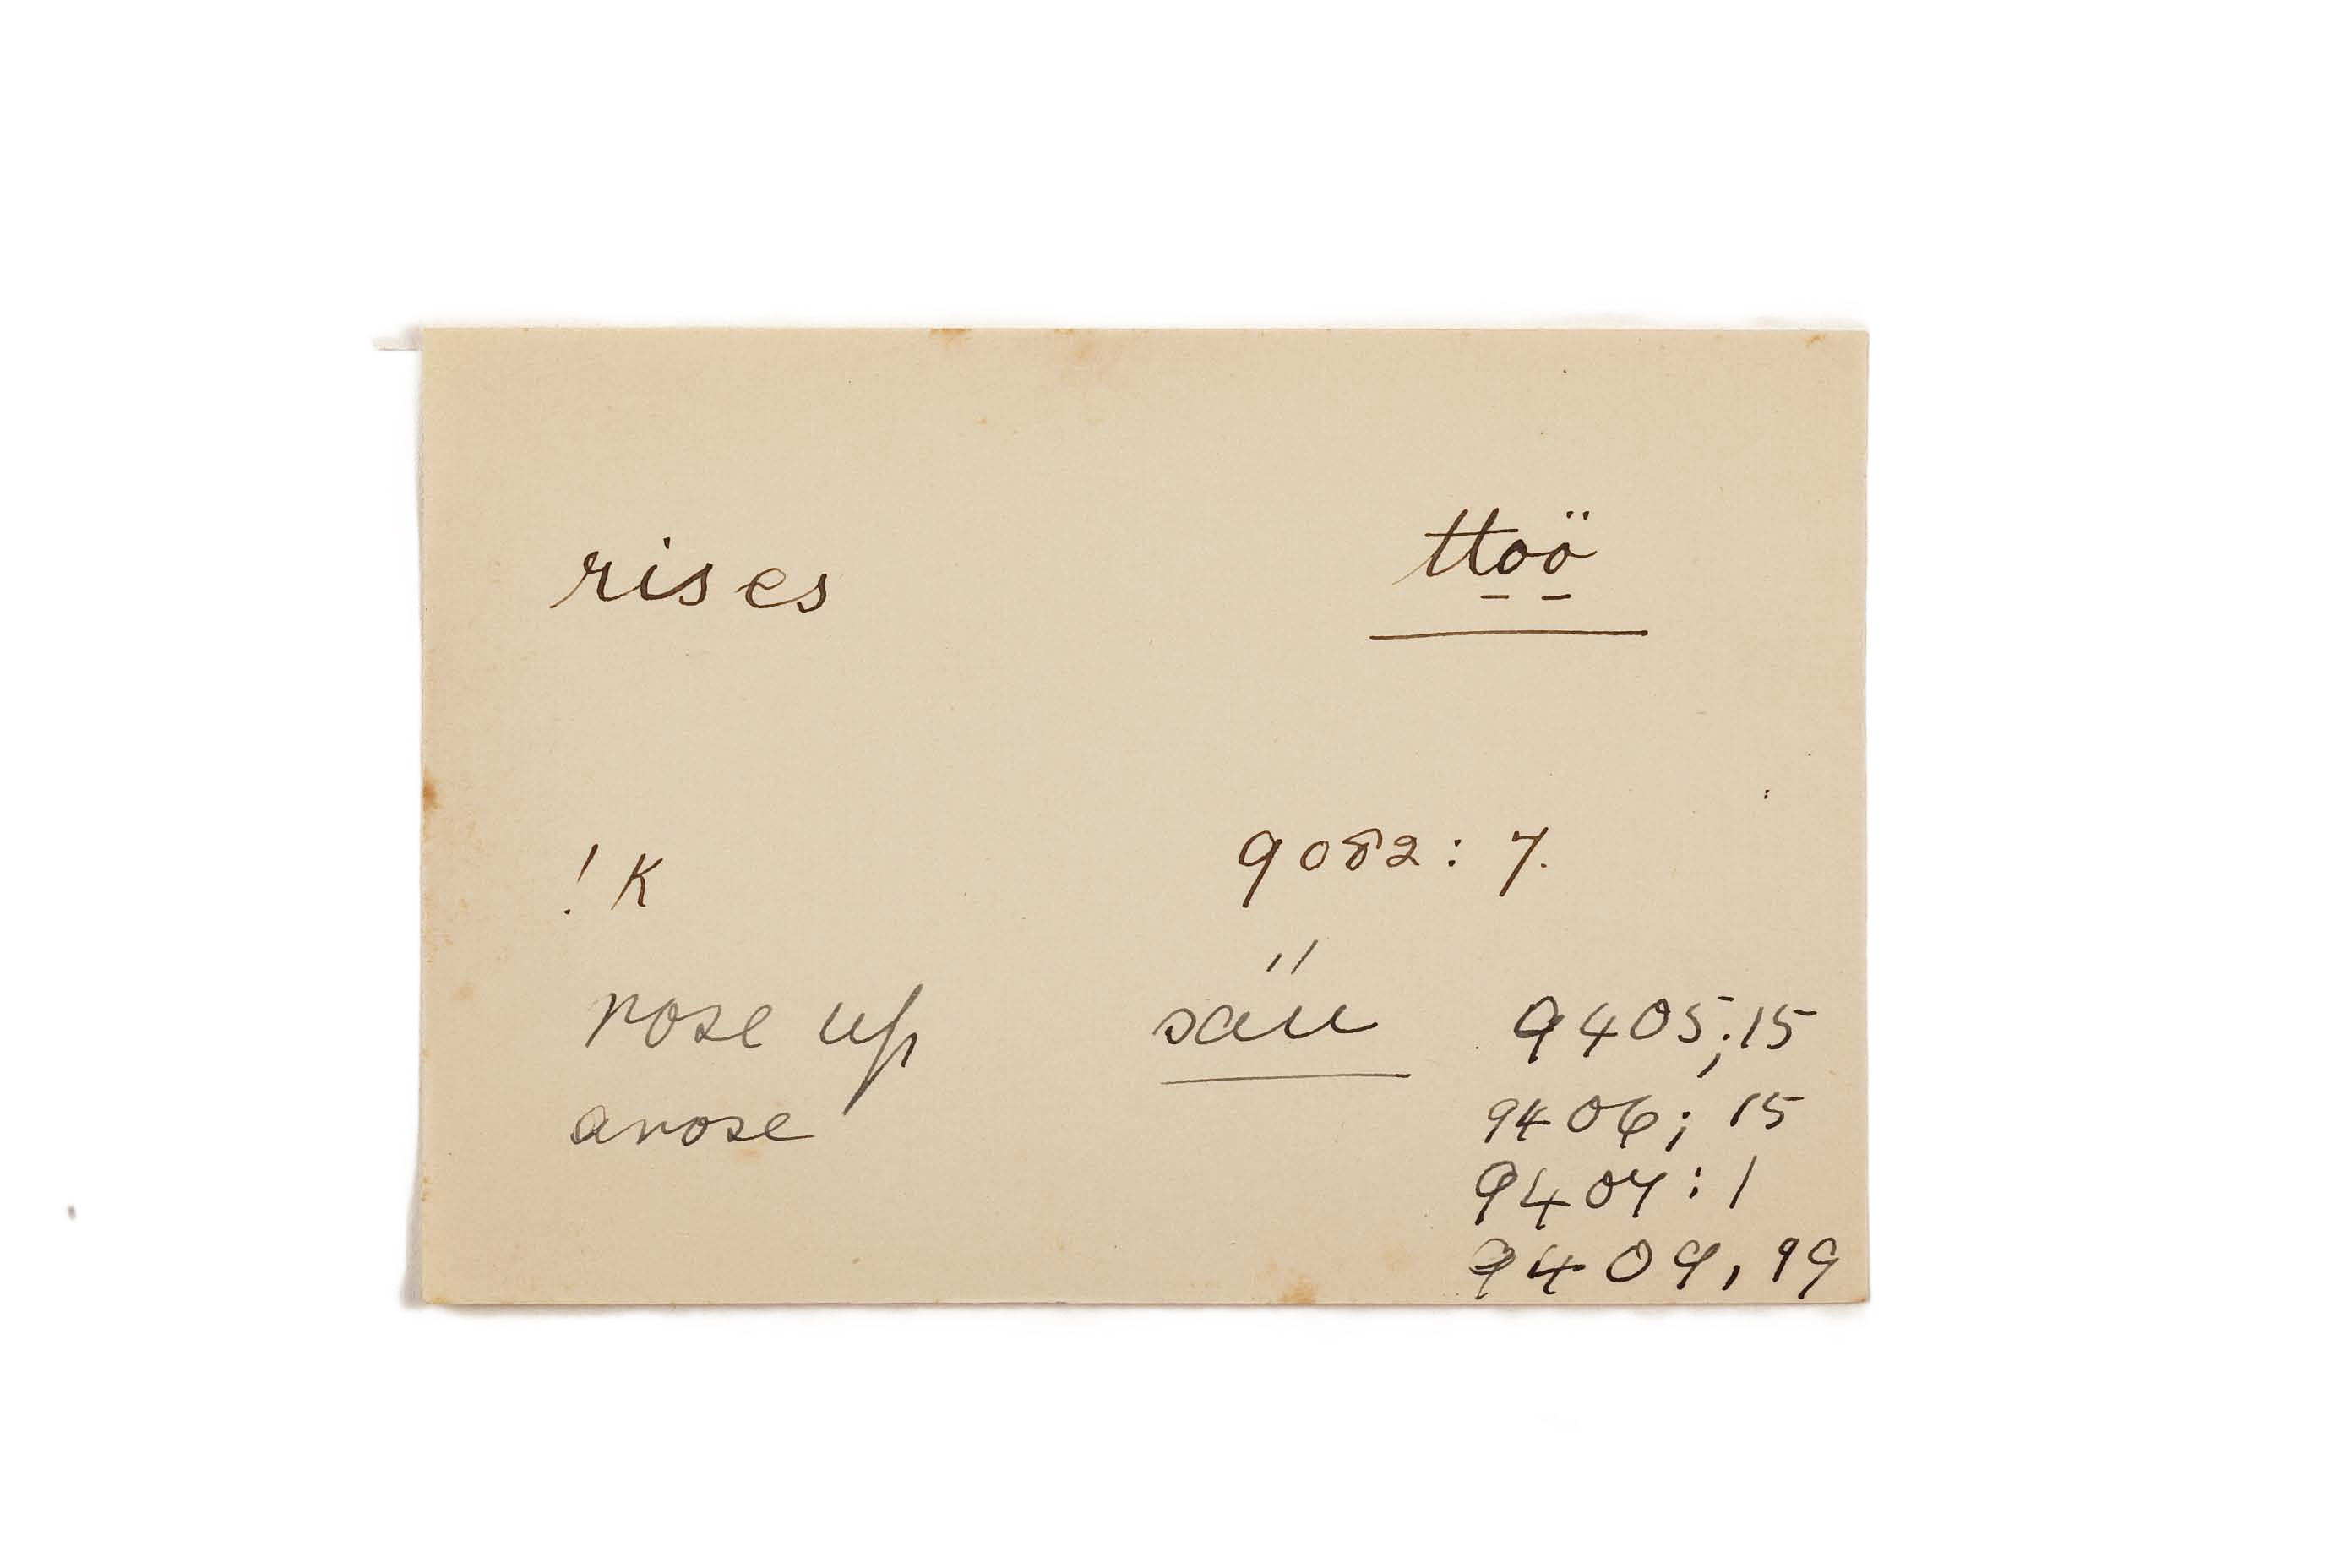 rises tto̱ö̱
!K 9082: 7.
rose up säu 9405;15
arose 9406; 15
9407:1
9409, 19